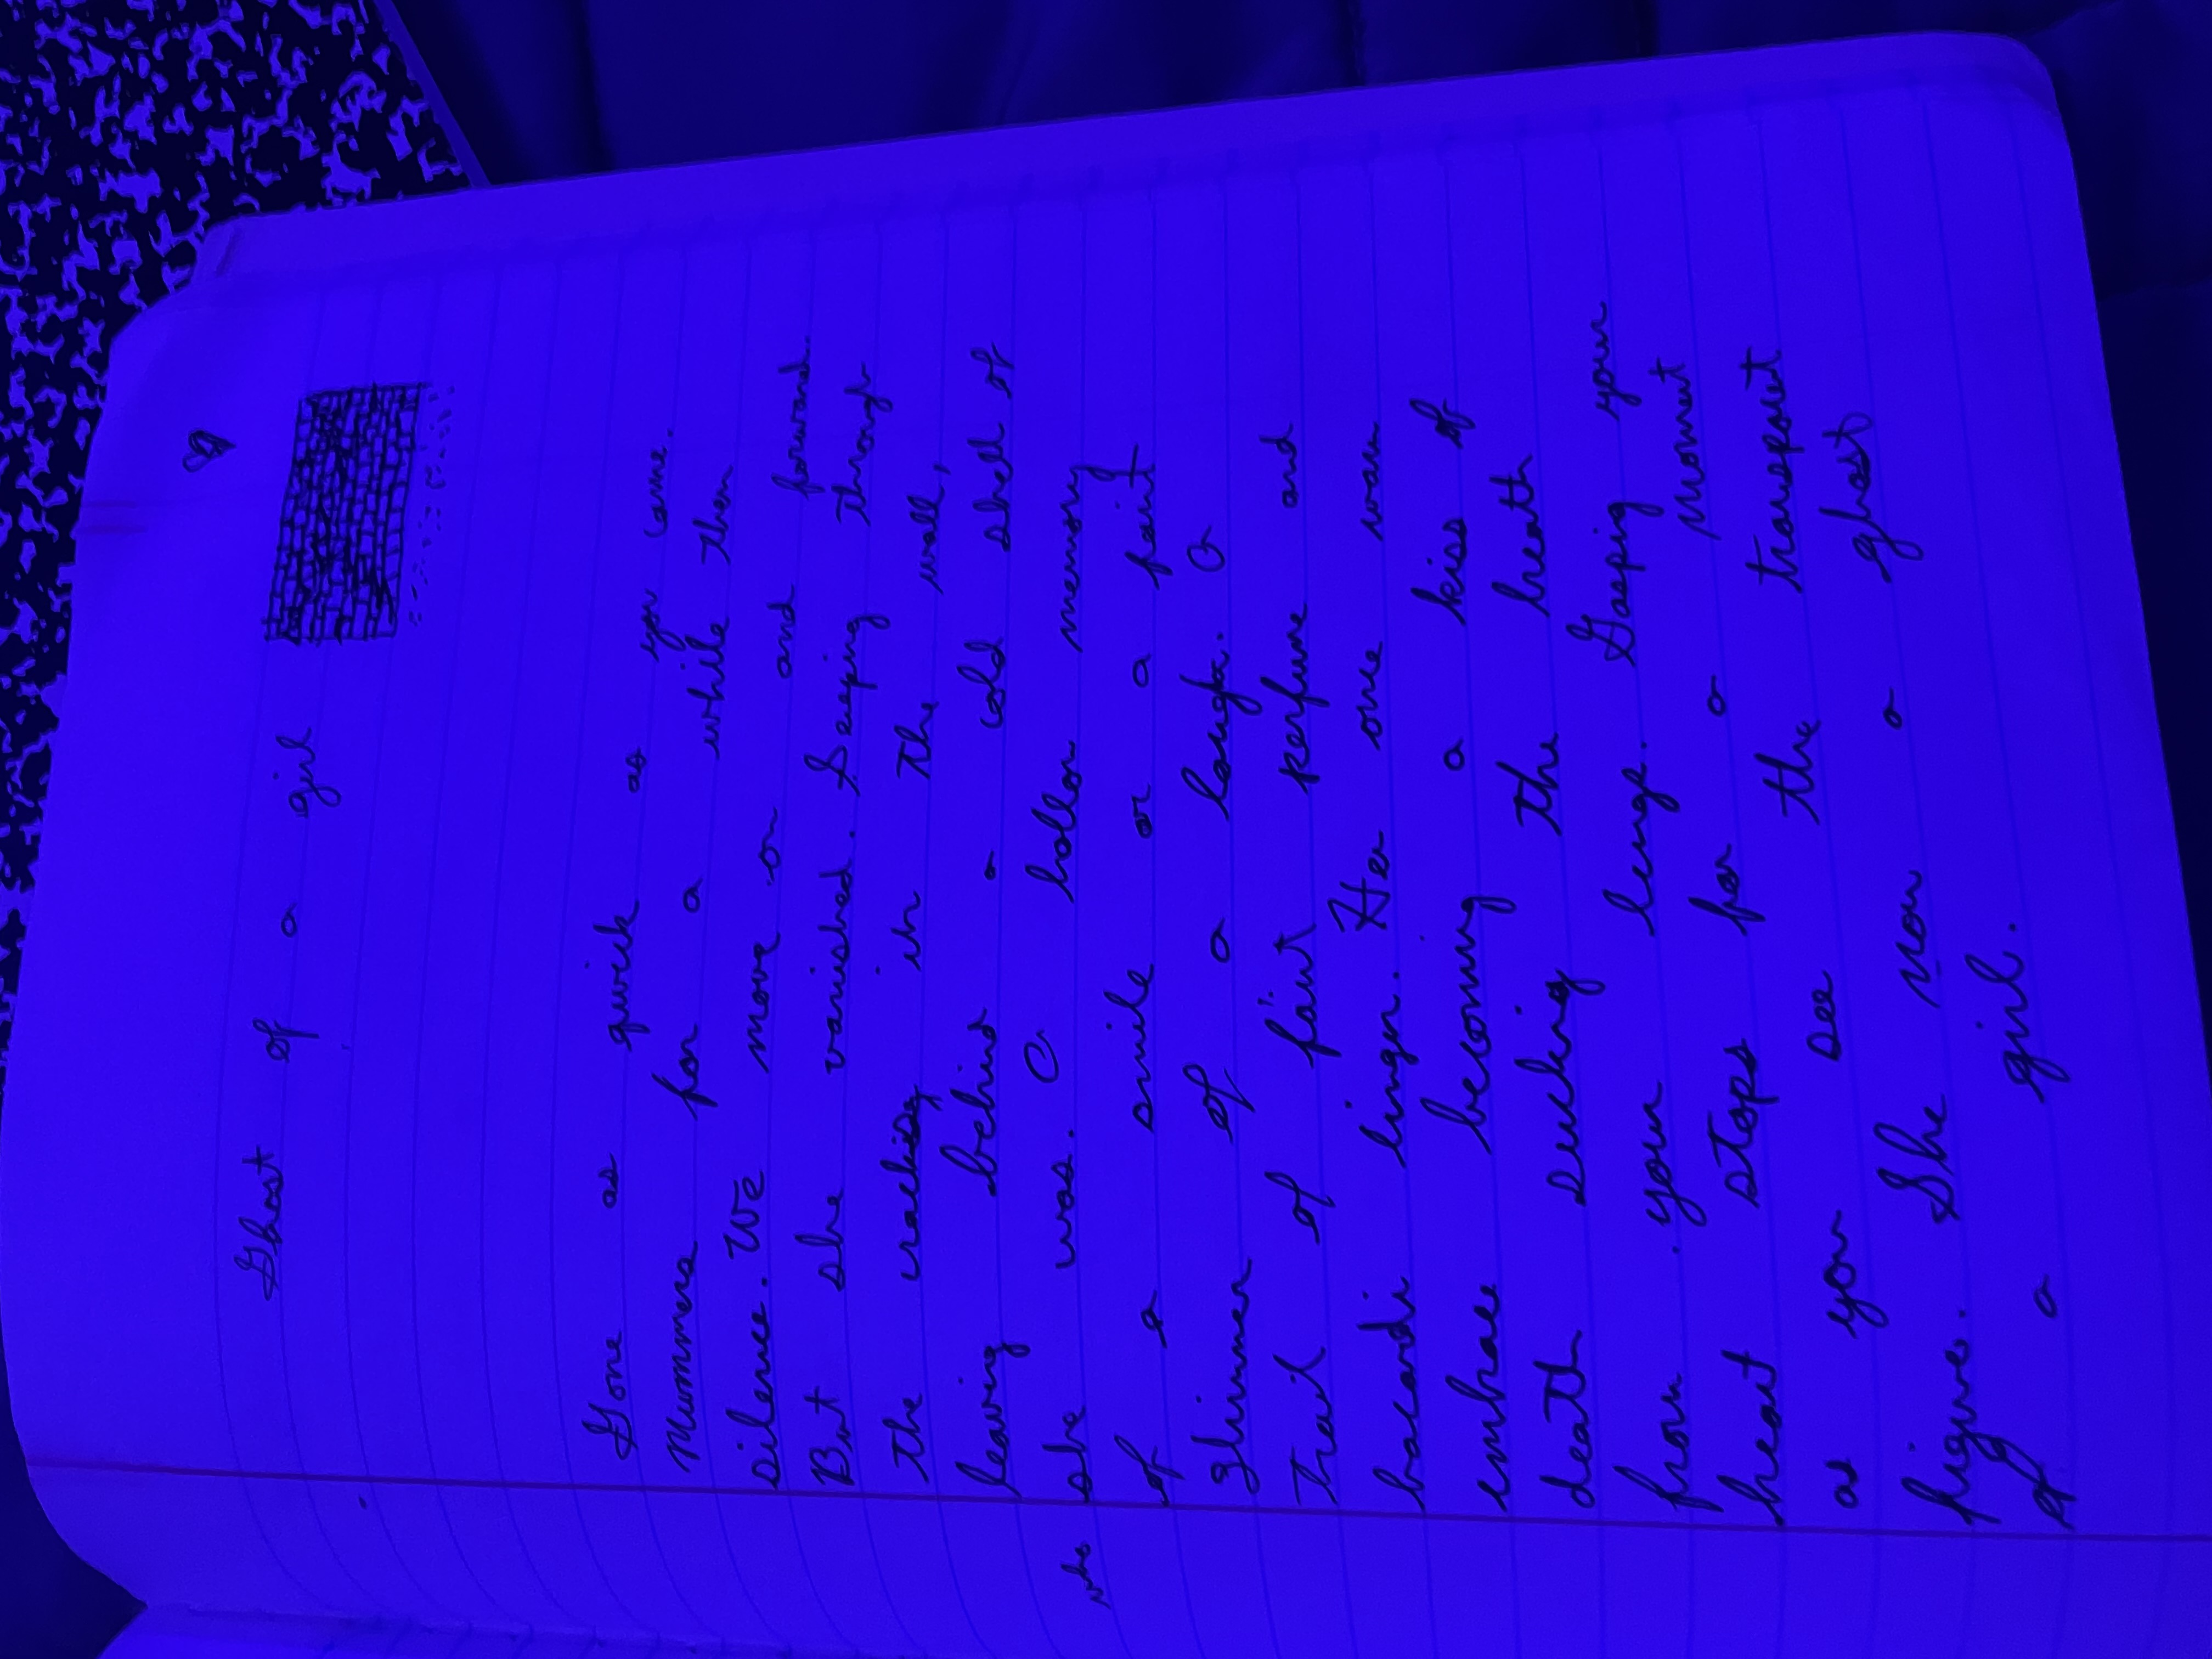 Ghost of a girl
Gone as quick as you came.
Mummers for a while then
silence. We move on and forward.
But she vanished. Seeping through
the cracking in the wall,
leaving behind a cold shell of
who she was. A hollow memory
of a smile or a faint
Glimmer of a laugh. A
trail of faint perfume and
bacardi linger. Her one warm
embrace becoming a kiss of
death sucking the breath
from your lungs. Gasping your
heart stops for a moment
as you see the transparent
figure. She now a ghost
of a girl.